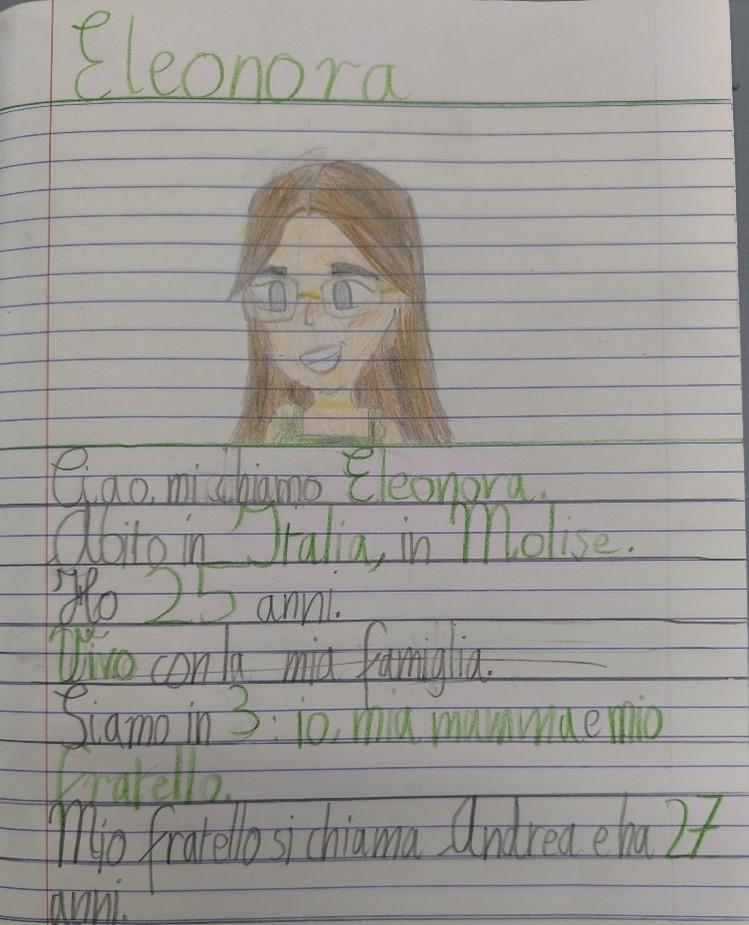 Eleonora
Ciao, mi chiamo Eleonora.
Abito in Italia, in Molise.
Ho 25 anni.
Vivo con la mia famiglia.
Siamo in 3: io, mia mamma e mio
fratello.
Mio fratello si chiama Andrea e ha 27
anni.